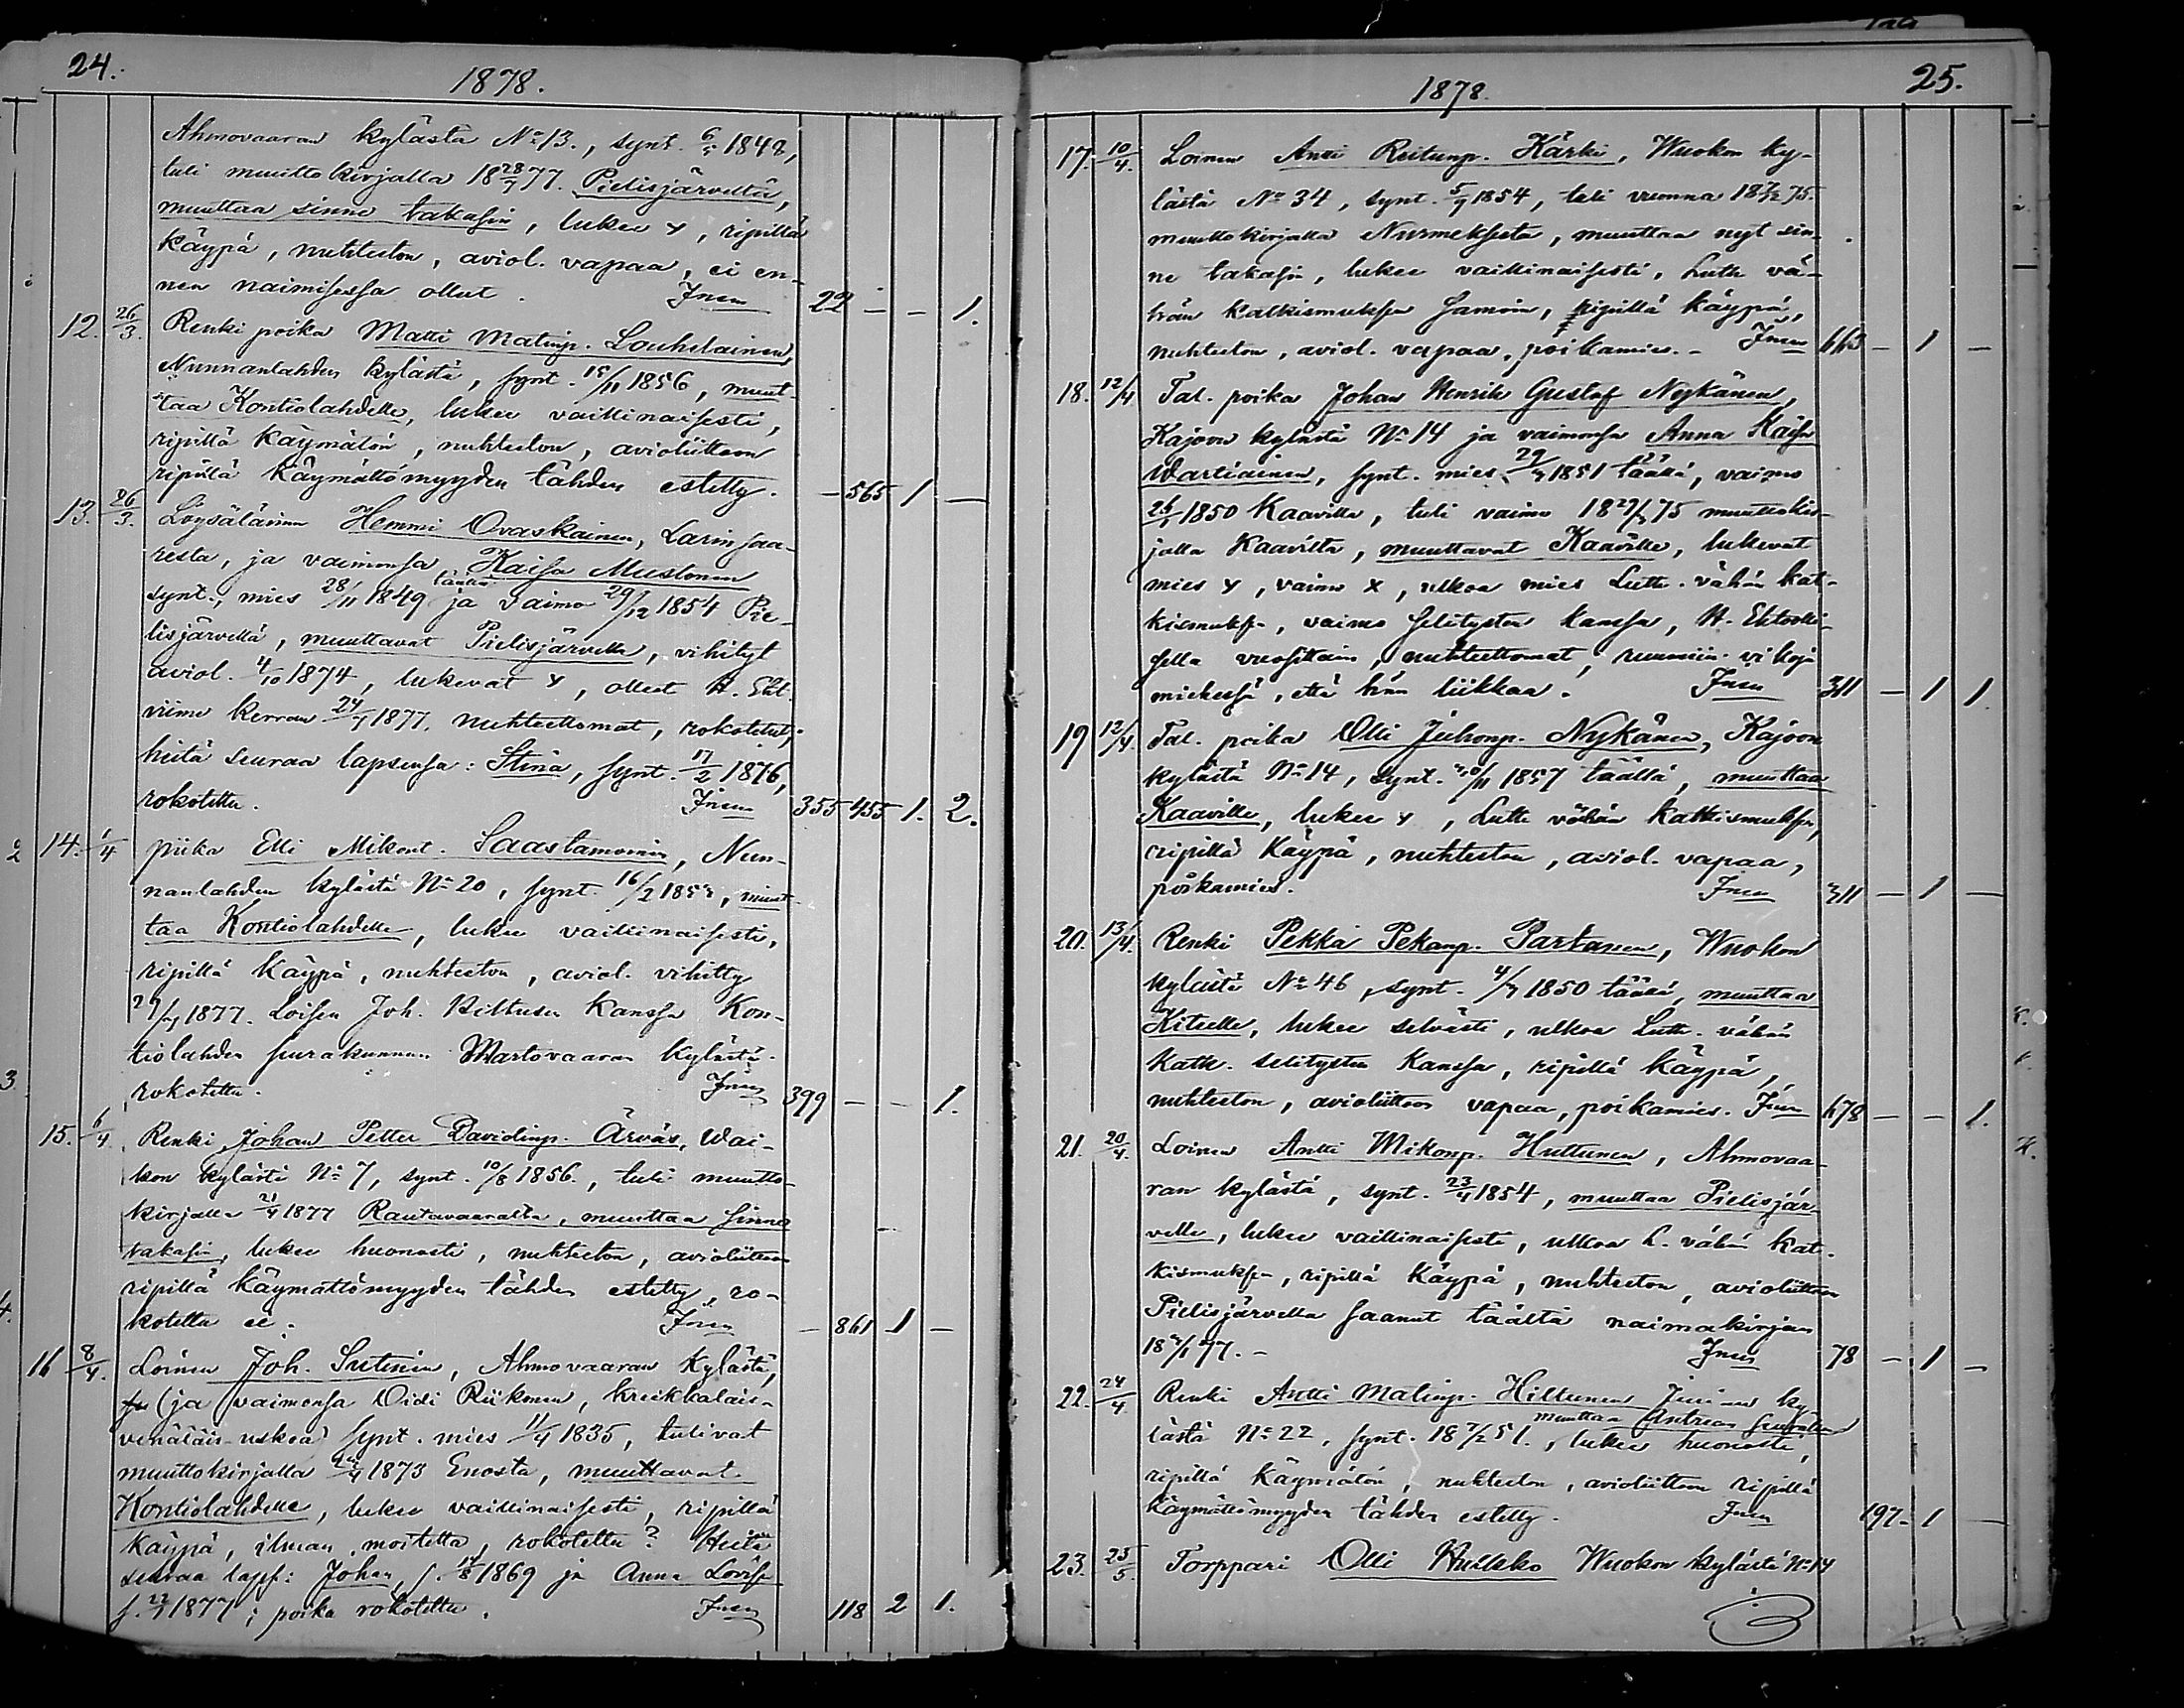 24.
1878.
Ahmovaaran kylästä No 13., synt. 1848,
tuli muuttokirjalla 18 28/7 77. Pielisjärveltä,
muuttaa sinne takasin, lukee x, ripillä
käypä, nuhteeton, aviol. vapaa, ei en-
nen naimisessa ollut. 22 — — 1.
12. 26/3. Renki poika Matti Matinp. Louhelainen,
Nunnanlahden kylästä, synt. 15/11 1856, muut-
taa Kontiolahdelle, lukee vaillinaisesti,
ripillä käymätön, nuhteeton, avioliittoon
ripillä käymättömyyden tähden estetty. — 565 1 —
13. 26/3. Löysäläinen Hemmi Ovaskainen, Larinsaa-
resta, ja vaimonsa Kaisa Mustonen
synt., mies 28/11 1849 täällä ja vaimo 29/12 1854 Pie-
lisjärvellä, muuttavat Pielisjärvelle, vihityt
aviol. 4/10 1874, lukevat x, olleet H. Eht.
viime kerran 1877. nuhteettomat, rokotetut,
heitä seuraa lapsensa: Stina, synt. 17/2 1876,
rokotettu. 355 455 1. 2.
14. 1/4 piika Elli Mikont. Saastamoinen, Nun-
nanlahden kylästä No 20, synt. 16/2, muut-
taa Kontiolahdelle, lukee vaillinaisesti,
ripillä käypä, nuhteeton, aviol. vihitty
1877. Loisen Joh. Hiltusen kanssa Kon-
tiolahden seurakunnan Martovaaran kylästä.
rokotettu. 399 — — 1.
15. 6/4. Renki Johan Petter Davidinp. Ärväs, Wai-
kon kylästä No 7, synt. 10/8 1856., tuli muutto-
kirjalla 21/4 1877 Rautavaaralta, muuttaa sinne
takasin, lukee huonosti, nuhteeton, avioliittoon
ripillä käymättömyyden tähden estetty, ro-
kotettu ei. — 861 1 —
16 8/4. Loinen Joh. Sutinen, Ahmovaaran kylästä,
(ja vaimonsa Oidi Riikonen, kreikkalais-
venäläis-uskoa) synt. mies 11/4 1835, tulivat
muuttokirjalla 1873 Enosta, muuttavat
Kontiolahdelle, lukee vaillinaisesti, ripillä
käypä, ilman moitetta, rokotettu? Heitä
seuraa laps: Johan, s. 14/8 1869 ja Anna Lovisa
s. 1877; poika rokotettu. 118 2 1.
1878.
25.
17. 10/4. Loinen Antti Reitunp. Kärki, Wuokon ky-
lästä No 34, synt. 5/9 1854, tuli vuonna 75.
muuttokirjalla Nurmeksesta, muuttaa nyt sin-
ne takasin, lukee vaillinaisesti, Luth vä-
hän katkismuksen samoin, ripillä käypä,
nuhteeton, aviol. vapaa, poikamies. — 663 — 1 —
18. 12/4 Tal. poika Johan Henrik Gustaf Nykänen,
Kajoon kylästä No 14 ja vaimonsa Anna Kaisa
Wartiainen, synt. mies 1851 täällä, vaimo
1850 Kaavilla, tuli vaimo 75 muuttokir-
jalla Kaavilta, muuttavat Kaaville, lukevat
mies x, vaimo x, ulkoa mies Luth. vähän kat-
kismuksen, vaimo selitysten kanssa, H. Ehtoolli-
sella vuosittain, nuhteettomat, ruumiin vikoja
miehessä, että hän liikkaa. 311 — 1 1
19 12/4. Tal. poika Olli Juhonp. Nykänen, Kajoon
kylästä No 14, synt. 1857 täällä, muuttaa
Kaaville, lukee x, Luth vähän katkismuksen,
ripillä käypä, nuhteeton, aviol. vapaa,
poikamies. 311 — 1 —
20. 13/4. Renki Pekka Pekanp. Partanen, Wuokon
kylästä No 46, synt. 1850 täällä, muuttaa
Kiteelle, lukee selvästi, ulkoa Luth. vähän
Kath. selitysten kanssa, ripillä käypä,
nuhteeton, avioliittoon vapaa, poikamies. 678 — — 1.
21. 20/4. Loinen Antti Mikonp. Huttunen, Ahmovaa-
ran kylästä, synt. 23/4 1854, muuttaa Pielisjär-
velle, lukee vaillinaisesti, ulkoa L. vähän kat-
kismuksen, ripillä käypä, nuhteeton, avioliittoon
Pielisjärvelle saanut täältä naimakirjan
77. — 78 — 1 —
22. 24/4. Renki Antti Matinp. Hiltunen Juuan ky-
muuttaa Antrean
lästä No 22, synt. 18 7/2 51., lukee huonosti,
ripillä käymätön, nuhteeton, avioliittoon ripillä
käymättömyyden tähden estetty. 197 — 1 —
23. 25/5. Torppari Olli Hukko Wuokon kylästä No 14